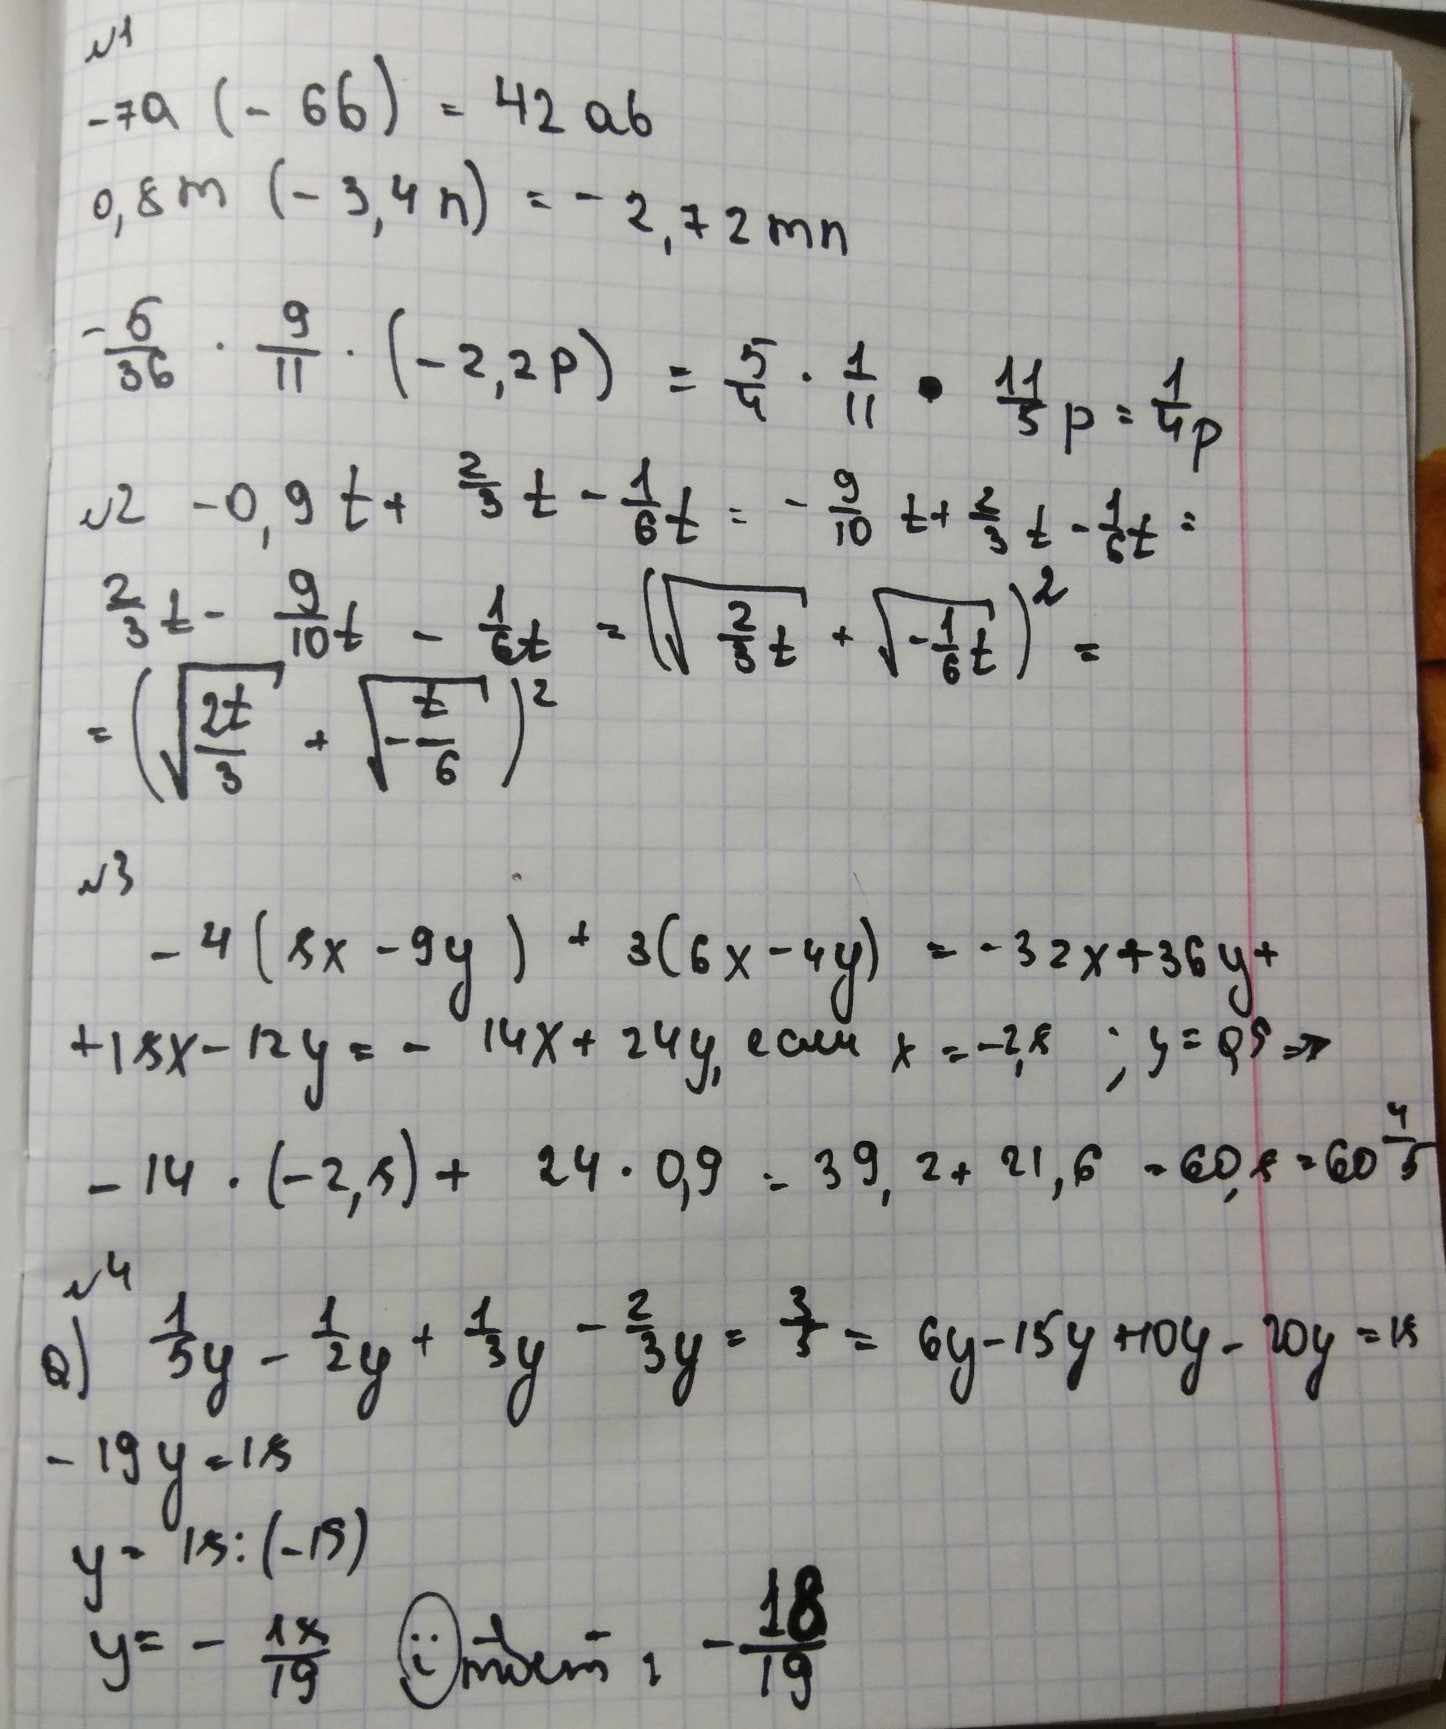 №1
-7a (- 6b) = 42 ab
0,8m (- 3,4 n) = - 2,72 mn
- 5/36 · 9/11 · (- 2,2 p) = 5/4 · 1/11 · 11/5 p = 1/4 p
№2 - 0,9 t + 2/3 t - 1/6 t = - 9/10 t + 2/3 t - 1/6 t =
2/3 t - 9/10 t - 1/6 t = (√(2/3 t) + √(-1/6 t))² =
= (√(2t/3) + √(-t/6))²
№3
- 4 (8x - 9y) + 3(6x - 4y) = - 32x + 36y +
+ 18x - 12y = - 14x + 24y, если x = -2,8 ; y = 0,9 =>
- 14 · (-2,8) + 24 · 0,9 = 39,2 + 21,6 = 60,8 = 60 4/5
№4
a) 1/5 y - 1/2 y + 1/3 y - 2/3 y = 3/5 = 6y - 15y + 10y - 20y = 18
- 19y = 18
y = 18 : (-19)
y = - 18/19 Ответ : - 18/19